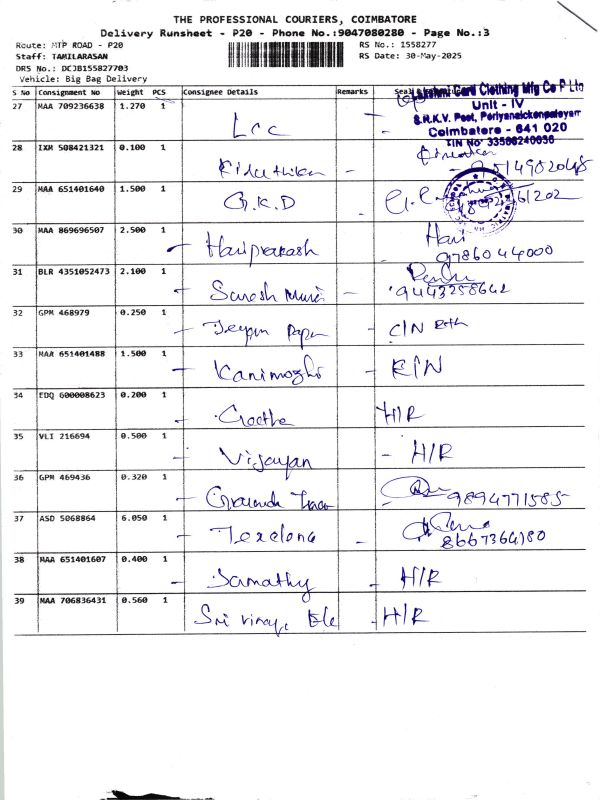 THE PROFESSIONAL COURIERS, COIMBATORE
Delivery Runsheet - P20 - Phone No.:9047080280 - Page No.:3
Route: MTP ROAD - P20
RS No.: 1558277
Staff: TAMILARASAN
RS Date: 30-May-2025
DRS No.: DCJB155827703
Vehicle: Big Bag Delivery
S No Consignment No Weight PCS Consignee Details Remarks Seal &
Lakshmi Card Clothing Mfg Co P Ltd
Unit - IV
S.R.K.V. Post, Periyanaickenpalayam
Coimbatore - 641 020
TIN No 33566240036
27 MAA 709236638 1.270 1 Lcc
28 IXM 508421321 0.100 1 -
29 MAA 651401640 1.500 1 G.K.D -
30 MAA 869696507 2.500 1 - Hariprakash Hari
9786044000
31 BLR 4351052473 2.100 1 - Suresh -
9443258642
32 GPM 468979 0.250 1 - -
33 MAA 651401488 1.500 1 - Kanimozhi -
34 EDQ 600008623 0.200 1 - Geetha H/R
35 VLI 216694 0.500 1 - Vijayan - H/R
36 GPM 469436 0.320 1 -
9894771585
37 ASD 5068864 6.050 1 -
8667364180
38 MAA 651401607 0.400 1 - - H/R
39 MAA 706836431 0.560 1 Sri - H/R